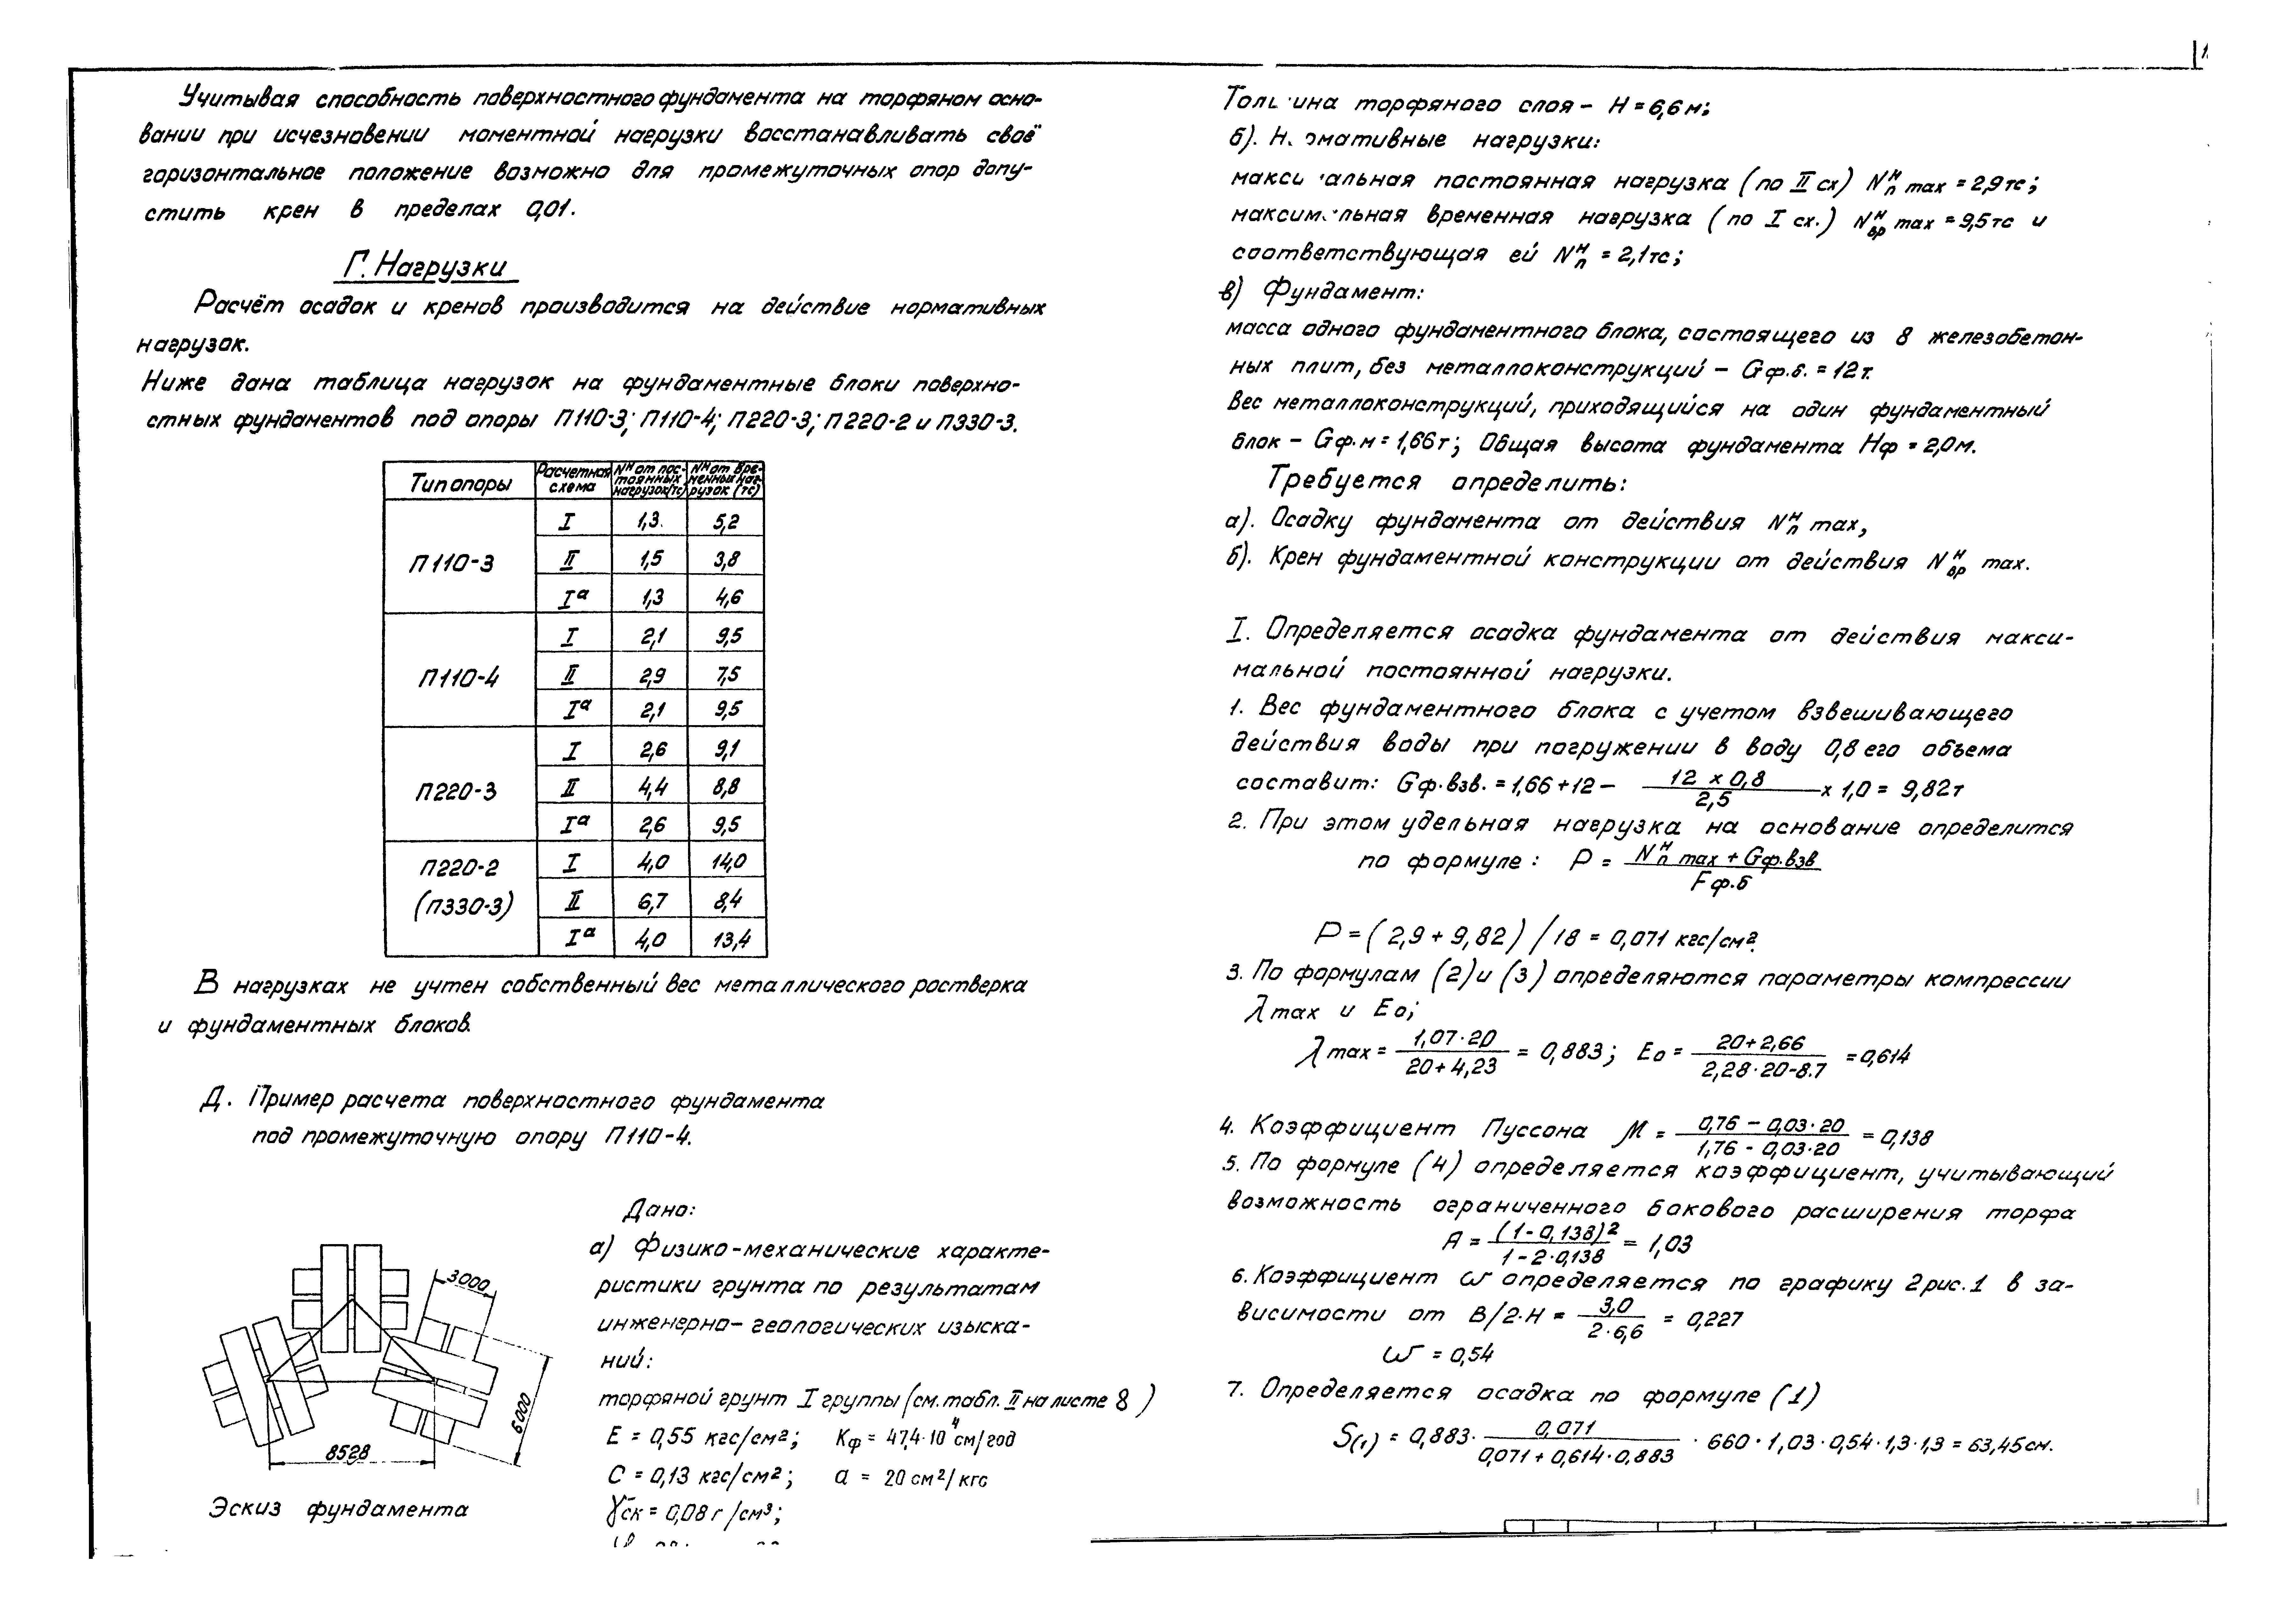 Учитывая способность поверхностного фундамента на торфяном осно-
вании при исчезновении моментной нагрузки восстанавливать своё
горизонтальное положение возможно для промежуточных опор допу-
стить крен в пределах 0,01.
Г. Нагрузки
Расчёт осадок и кренов производится на действие нормативных
нагрузок.
Ниже дана таблица нагрузок на фундаментные блоки поверхно-
стных фундаментов под опоры П110-3; П110-4; П220-3; П220-2 и П330-3.
Тип опоры | Расчетная схема | Nᴴ от постоянных нагрузок (тс) | Nᴴ от временных нагрузок (тс)
П110-3 | I | 1,3 | 5,2
II | 1,5 | 3,8
Iᵃ | 1,3 | 4,6
П110-4 | I | 2,1 | 9,5
II | 2,9 | 7,5
Iᵃ | 2,1 | 9,5
П220-3 | I | 2,6 | 9,1
II | 4,4 | 8,8
Iᵃ | 2,6 | 9,5
П220-2 (П330-3) | I | 4,0 | 14,0
II | 6,7 | 8,4
Iᵃ | 4,0 | 13,4
В нагрузках не учтен собственный вес металлического ростверка
и фундаментных блоков.
Д. Пример расчета поверхностного фундамента
под промежуточную опору П110-4.
3000
6000
8528
Эскиз фундамента
Дано:
а) Физико-механические характе-
ристики грунта по результатам
инженерно-геологических изыска-
ний:
торфяной грунт I группы (см. табл. II на листе 8)
E = 0,55 кгс/см²; Kф = 47,4·10⁴ см/год
C = 0,13 кгс/см²; a = 20 см²/кгс
γск = 0,08 г/см³;
1
Толщина торфяного слоя - H = 6,6 м;
б). Нормативные нагрузки:
максимальная постоянная нагрузка (по II сх) Nᴴп max = 2,9 тс;
максимальная временная нагрузка (по I сх.) Nᴴвр max = 9,5 тс и
соответствующая ей Nᴴп = 2,1 тс;
в) Фундамент:
масса одного фундаментного блока, состоящего из 8 железобетон-
ных плит, без металлоконструкций - Gф.б. = 12 т.
Вес металлоконструкций, приходящийся на один фундаментный
блок - Gф.м = 1,66 т; Общая высота фундамента Hф = 2,0 м.
Требуется определить:
а). Осадку фундамента от действия Nᴴп max,
б). Крен фундаментной конструкции от действия Nᴴвр max.
I. Определяется осадка фундамента от действия макси-
мальной постоянной нагрузки.
1. Вес фундаментного блока с учетом взвешивающего
действия воды при погружении в воду 0,8 его объема
составит: Gф.взв. = 1,66 + 12 - (12 x 0,8) / 2,5 x 1,0 = 9,82 т
2. При этом удельная нагрузка на основание определится
по формуле: P = (Nᴴп max + Gф.взв) / Fф.б
P = (2,9 + 9,82) / 18 = 0,071 кгс/см².
3. По формулам (2) и (3) определяются параметры компрессии
λ max и Eo;
λ max = 1,07·20 / 20 + 4,23 = 0,883; Eo = 20 + 2,66 / 2,28·20-8.7 = 0,614
4. Коэффициент Пуссона μ = 0,76 - 0,03·20 / 1,76 - 0,03·20 = 0,138
5. По формуле (4) определяется коэффициент, учитывающий
возможность ограниченного бокового расширения торфа
A = (1-0,138)² / 1-2·0,138 = 1,03
6. Коэффициент ω определяется по графику 2 рис. 1 в за-
висимости от B/2·H = 3,0 / 2·6,6 = 0,227
ω = 0,54
7. Определяется осадка по формуле (1)
S(1) = 0,883 · 0,071 / 0,071 + 0,614·0,883 · 660 · 1,03 · 0,54 · 1,3 · 1,3 = 63,45 см.